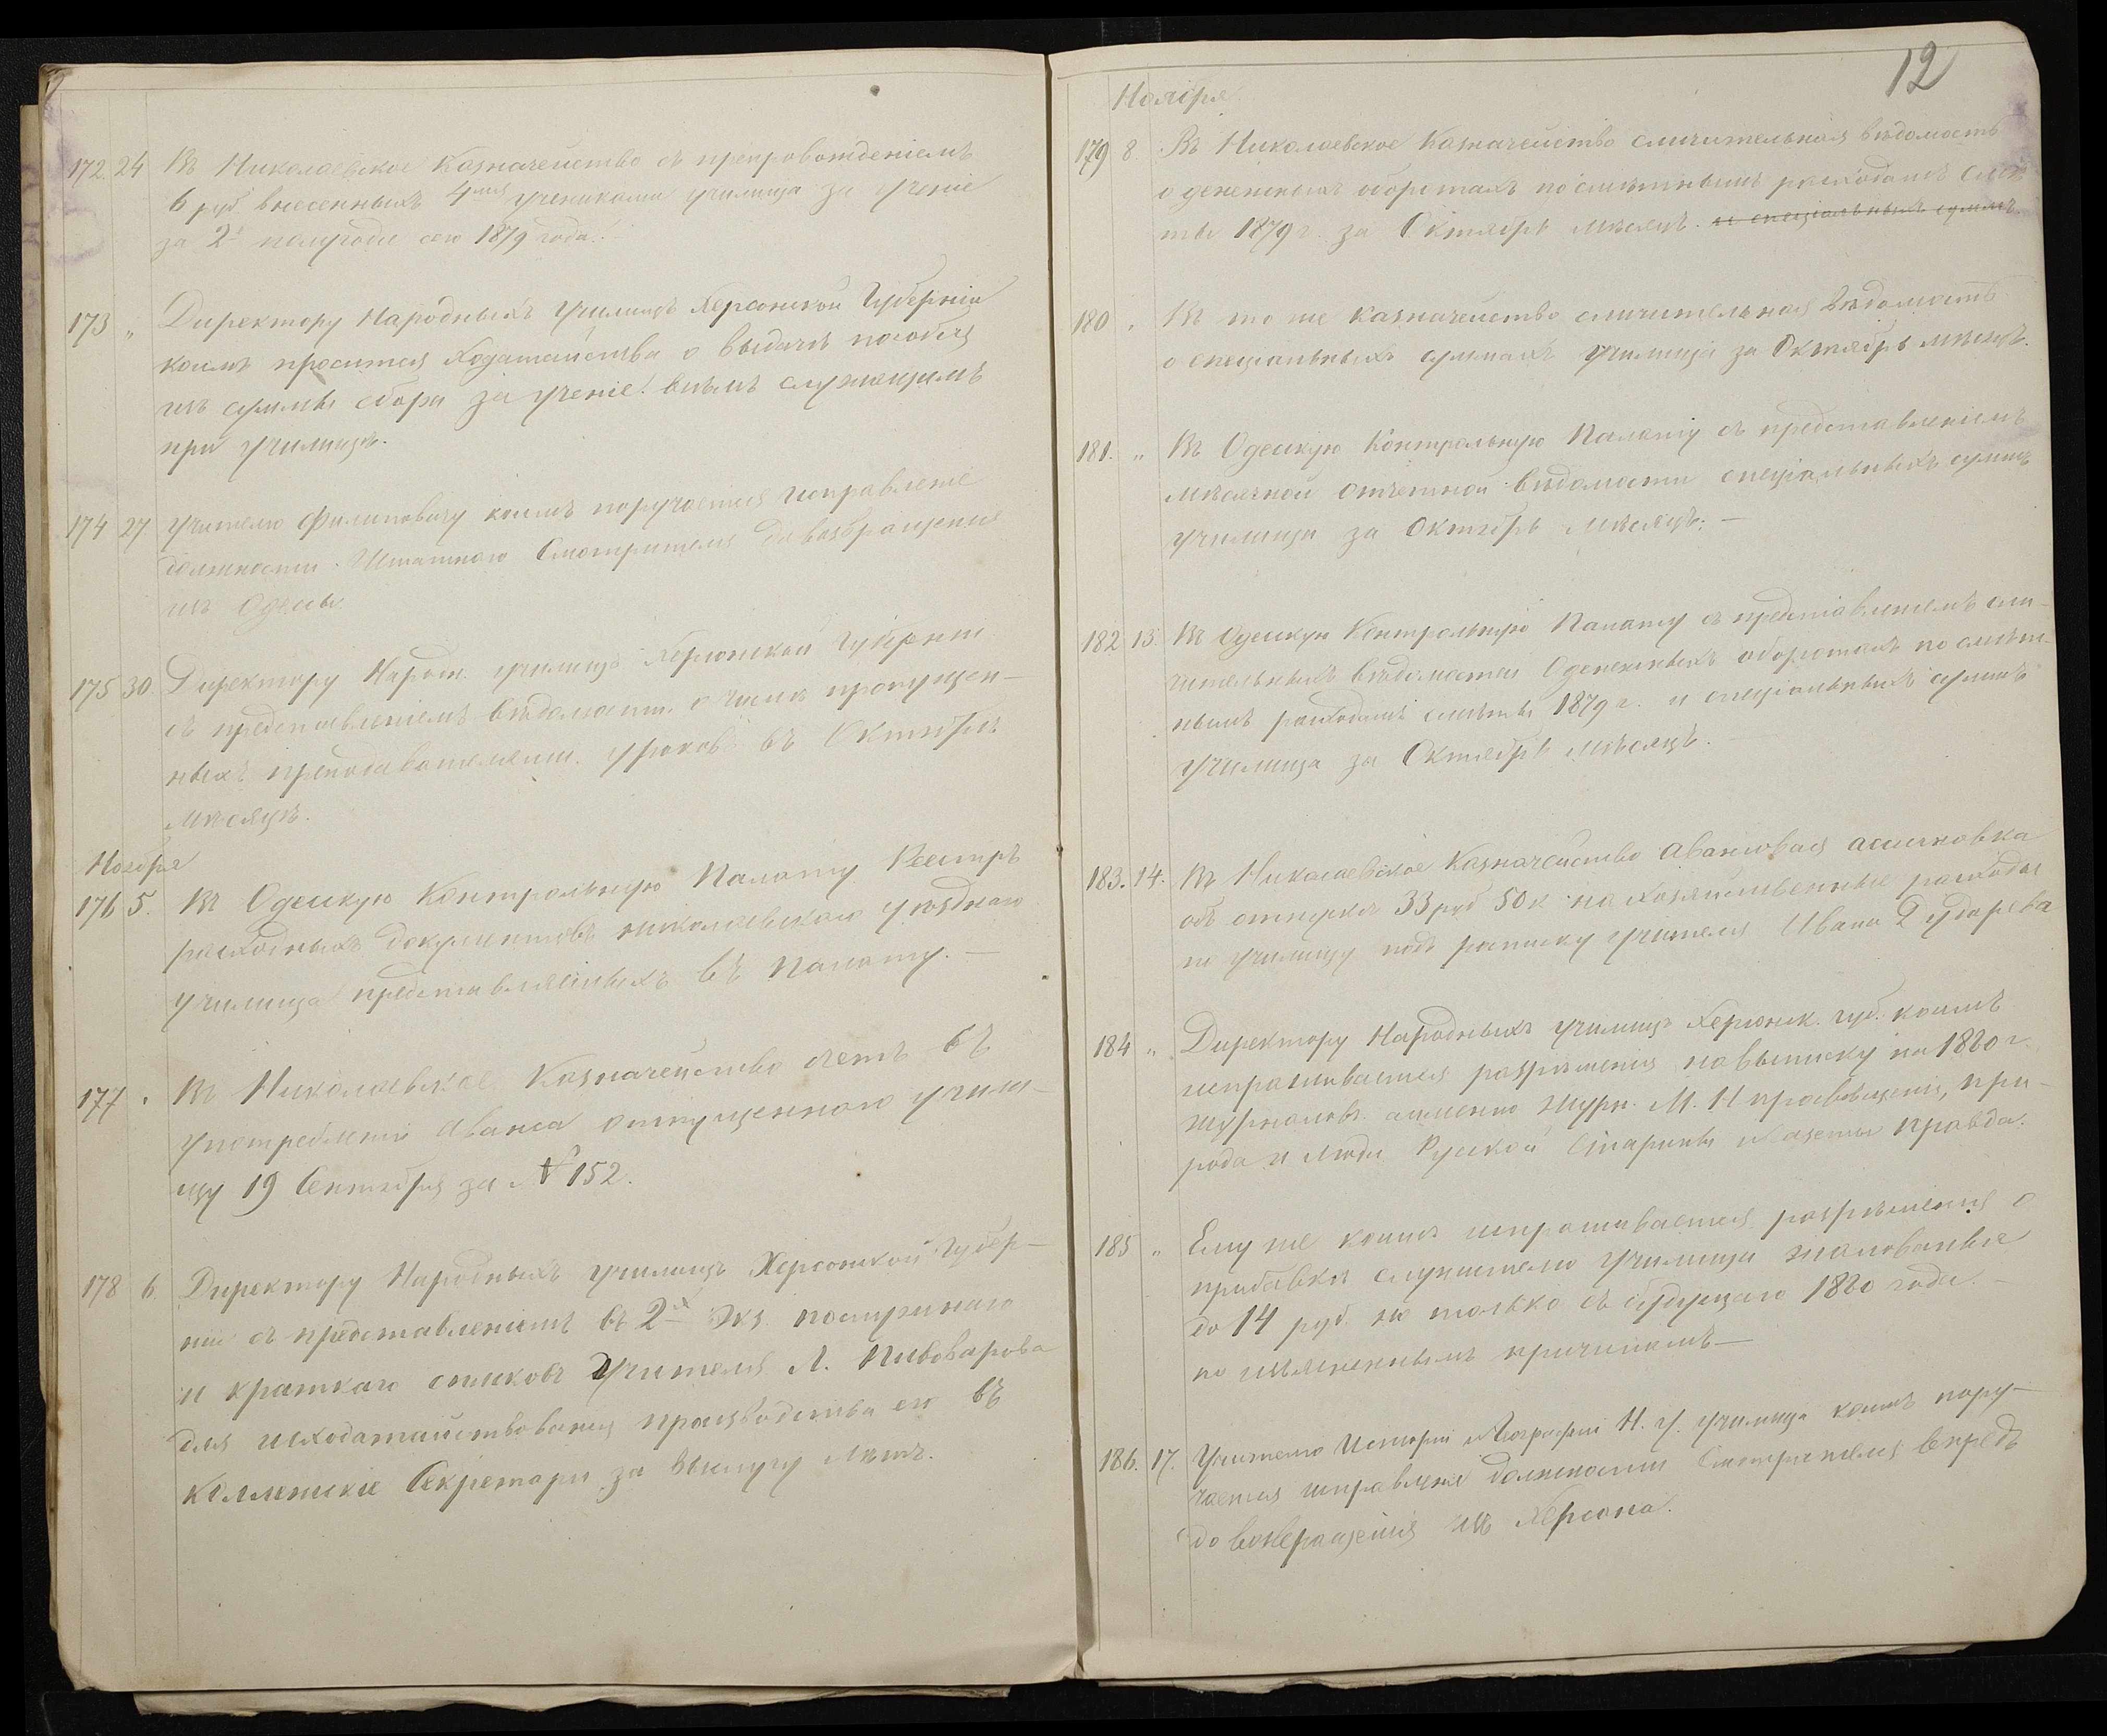 172. 24 Въ Николаевское Казначейство съ препровожденіемъ
6 руб внесенныхъ 4мя учениками училища за ученіе
за 2е полугодіе сего 1879 года.
173 " Директору Народныхъ Училищъ Херсонской Губерніи
коимъ просится Ходатайства о выдачѣ пособія
изъ суммы сбора за ученіе всѣмъ служащимъ
при училищѣ.
174 27. Учителю Филиповичу коимъ поручается исправленіе
должности Штатнаго Смотрителя до возвращенія
изъ Одессы
175 30. Директору Народн. училищъ Херсонской Губерніи
съ представленіемъ вѣдомости о числѣ пропущен-
ныхъ преподавателями уроковъ въ Октябрѣ
мѣсяцѣ.
Ноября
176 5. Въ Одесскую Контрольную Палату Реестръ
расходныхъ документовъ николаевскаго уѣзднаго
училища представляемыхъ въ Палату. —
177 " Въ Николаевское Казначейство счетъ въ
употребленіи Аванса отпущеннаго учили-
щу 19 Сентября за № 152.
178 6. Директору Народныхъ училищъ Херсонской Губер-
ніи съ представленіемъ въ 2х экз. послужнаго
и краткаго списковъ Учителя Л. Пивоварова
для исходатайствованія производства его въ
Коллежскіе Секретари за выслугу лѣтъ.
12
Ноября
179 8. Въ Николаевское Казначейство сличительная вѣдомость
о денежныхъ оборотахъ по смѣтнымъ расходамъ смѣ-
ты 1879 г. за Октябрь мѣсяцъ. и спеціальныхъ суммъ.
180 " Въ то же казначейство сличительная вѣдомость
о спеціальныхъ суммахъ училища за Октябрь мѣсяцъ.
181. " Въ Одесскую Контрольную Палату съ представленіемъ
мѣсячной отчетной вѣдомости спеціальныхъ суммъ
училища за Октябрь мѣсяцъ. —
182 13. Въ Одесскую Контрольную Палату съ представленіемъ сли-
чительныхъ вѣдомостей о денежныхъ оборотахъ по смѣт-
нымъ расходамъ смѣты 1879 г. и спеціальныхъ суммъ
училища за Октябрь мѣсяцъ.
183. 14. Въ Николаевское Казначейство авансовая ассигновка
объ отпускѣ 33 руб 50 к на хозяйственные расходы
по училищу подъ росписку учителя Ивана Дударева
184 " Директору Народныхъ училищъ Херсонск. губ. коимъ
испрашивается разрѣшенія на выписку на 1880 г.
журналовъ а именно журн. М. Н просвѣщенія, при-
рода и люди Русской Старины и газеты Правда.
185 " Ему же коимъ испрашивается разрѣшенія о
прибавкѣ служителю училища жалованья
до 14 руб. но только съ будущаго 1880 года. —
по изъясненнымъ причинамъ —
186. 17. Учителю Исторіи и Географіи Н. У. училища коимъ пору-
чается исправленіе должности Смотрителя впредь
до возвращенія изъ Херсона.